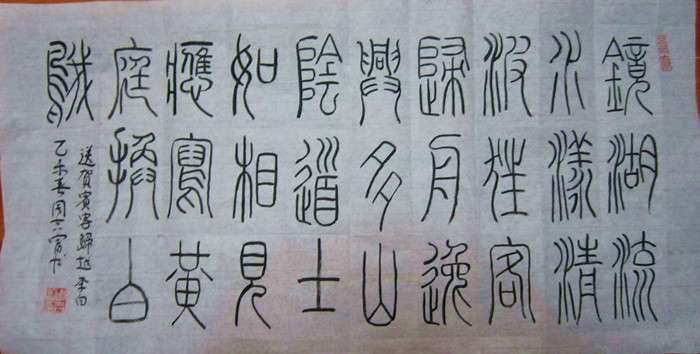 鏡湖流
水漾清
波狂客
歸舟逸
興多山
陰道士
如相見
應寫黃
庭換白
鵝
送賀賓客歸越 李白
乙未春周